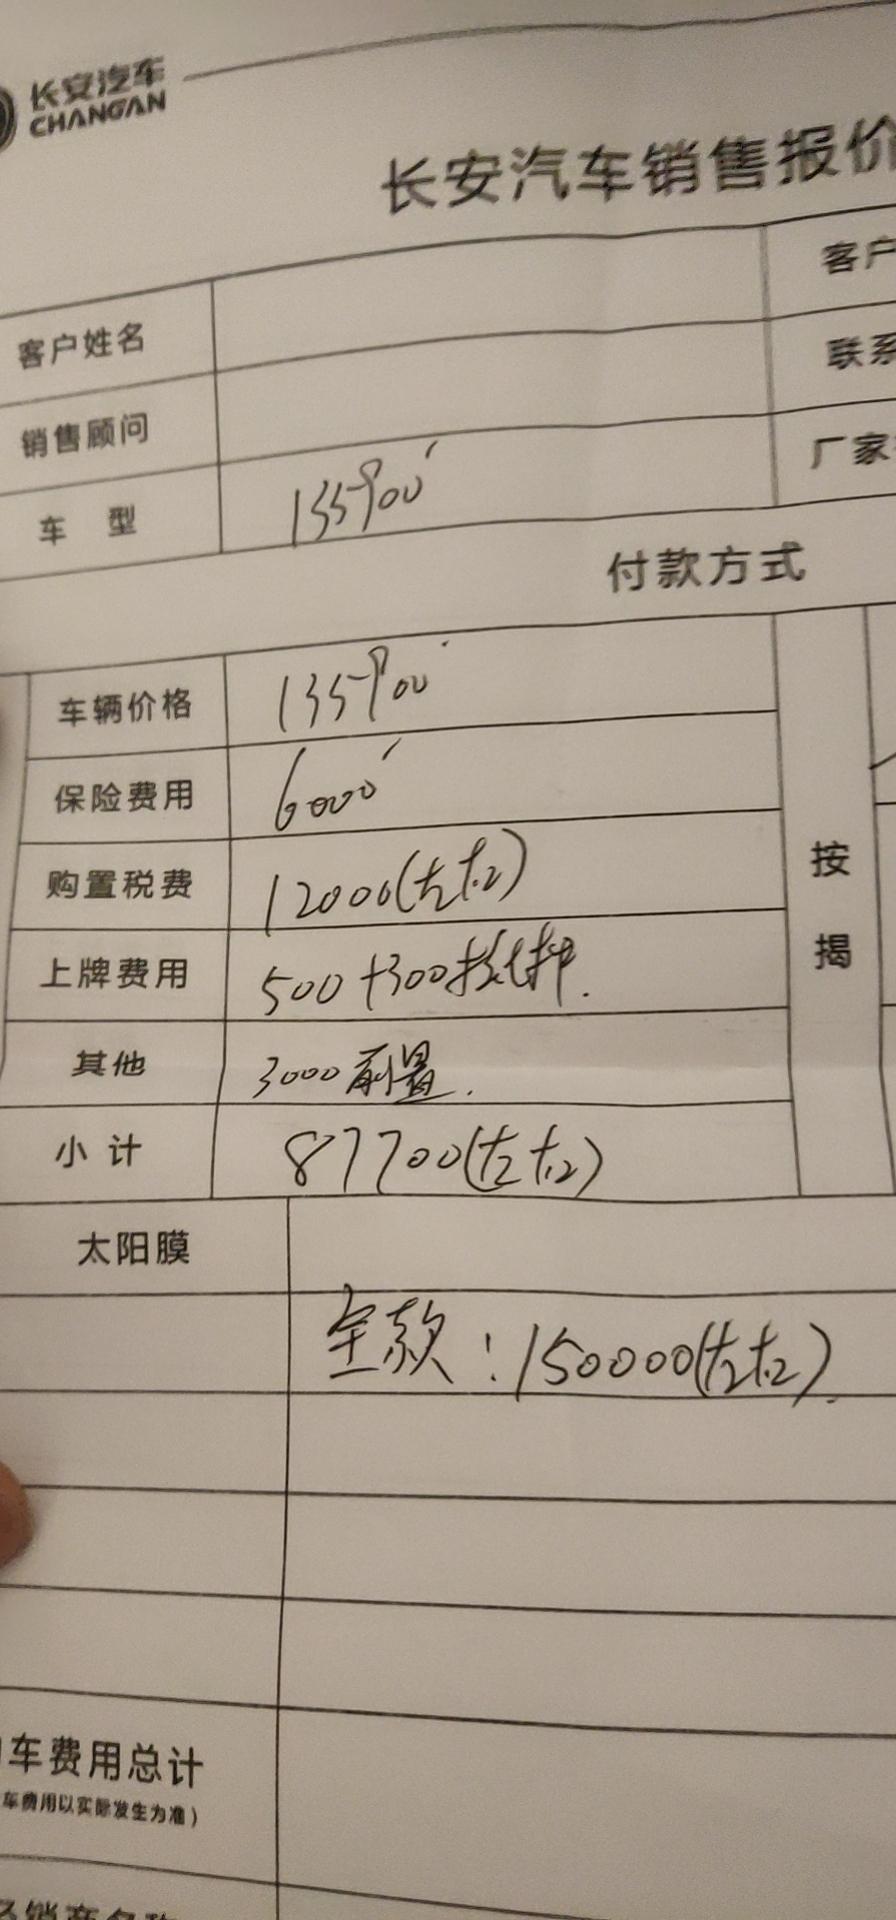 长安汽车
CHANGAN
长安汽车销售报价
客户姓名
客户
销售顾问
联系
车 型 135900
厂家
付款方式
车辆价格 135900
保险费用 6000
购置税费 12000(左右)
上牌费用 500+300抵押.
其他 3000前置.
小计 87700(左右)
按揭
太阳膜
全款：150000(左右)
车费用总计
车费用以实际发生为准）